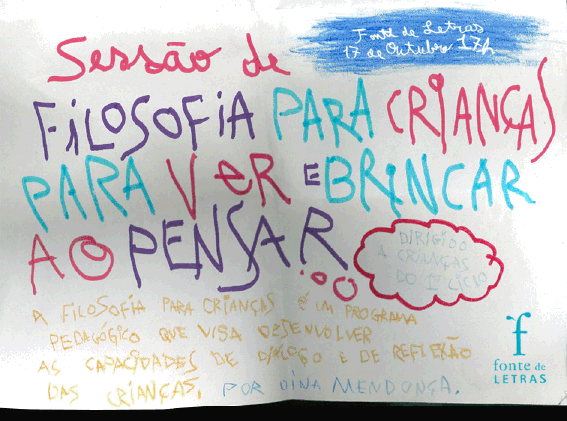 Sessão de
Fonte de Letras
17 de Outubro 17h
FILOSOFIA PARA CRIANÇAS
PARA VER E BRINCAR
AO PENSAR
DIRIGIDO
A CRIANÇAS
DO 1º CICLO
A FILOSOFIA PARA CRIANÇAS É UM PROGRAMA
PEDAGÓGICO QUE VISA DESENVOLVER
AS CAPACIDADES DE DIÁLOGO E DE REFLEXÃO
DAS CRIANÇAS. POR DINA MENDONÇA.
f
fonte de
LETRAS